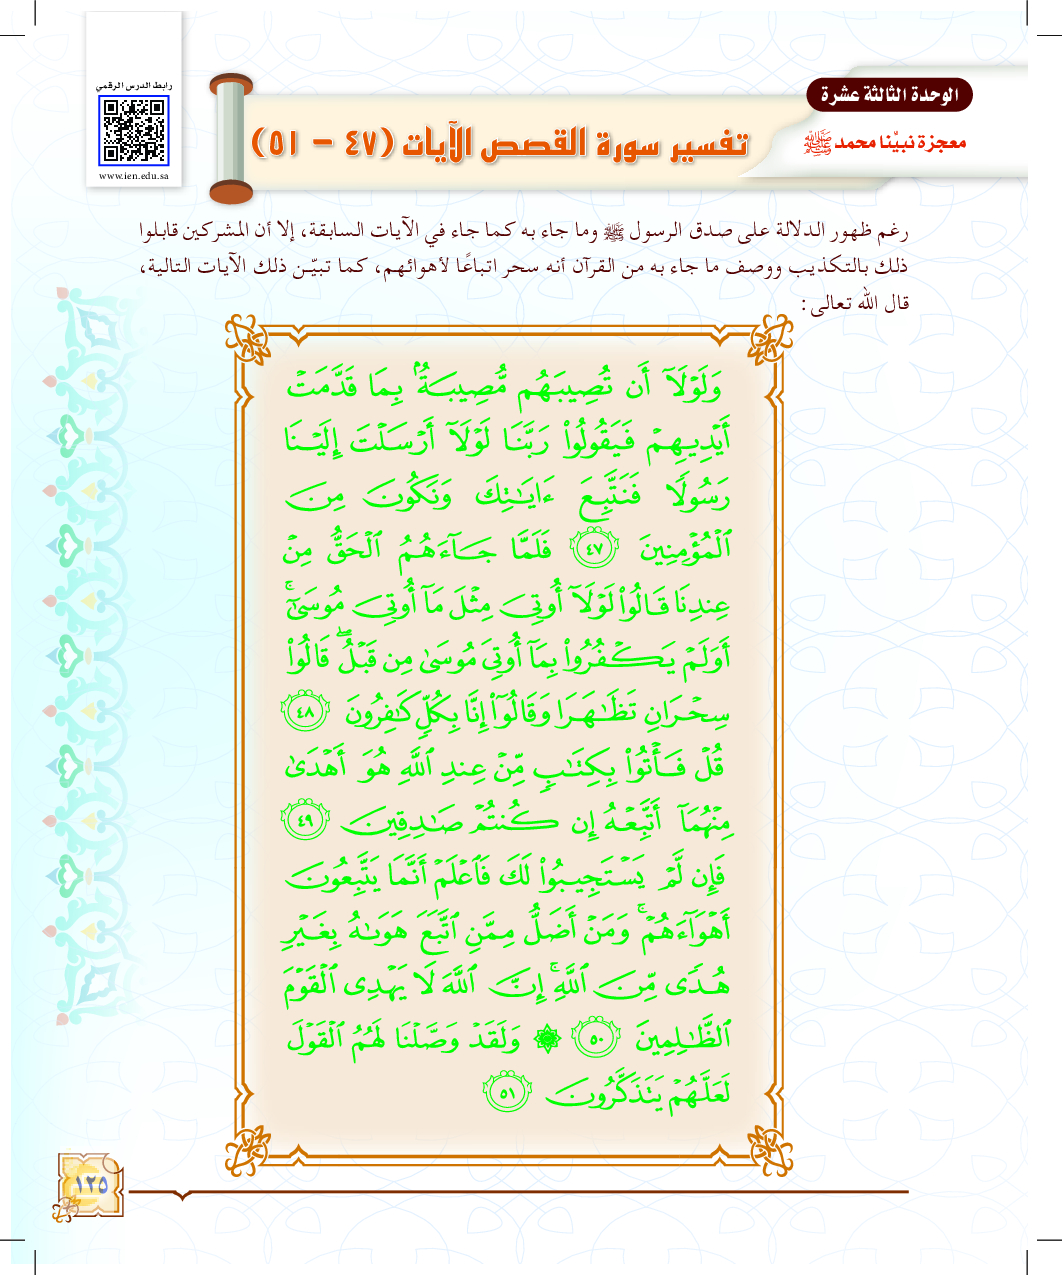 رابط الدرس الرقمي
www.ien.edu.sa
الوحدة الثالثة عشرة
معجزة نبيّنا محمد ﷺ
تفسير سورة القصص الآيات (٤٧ - ٥١)
رغم ظهور الدلالة على صدق الرسول ﷺ وما جاء به كما جاء في الآيات السابقة، إلا أن المشركين قابلوا
ذلك بالتكذيب ووصف ما جاء به من القرآن أنه سحر اتباعًا لأهوائهم، كما تبيّن ذلك الآيات التالية،
قال الله تعالى:
وَلَوْلَآ أَن تُصِيبَهُم مُّصِيبَةُۢ بِمَا قَدَّمَتْ
أَيْدِيهِمْ فَيَقُولُوا۟ رَبَّنَا لَوْلَآ أَرْسَلْتَ إِلَيْنَا
رَسُولًا فَنَتَّبِعَ ءَايَٰتِكَ وَنَكُونَ مِنَ
ٱلْمُؤْمِنِينَ ٤٧ فَلَمَّا جَآءَهُمُ ٱلْحَقُّ مِنْ
عِندِنَا قَالُوا۟ لَوْلَآ أُوتِىَ مِثْلَ مَآ أُوتِىَ مُوسَىٰٓ ۚ
أَوَلَمْ يَكْفُرُوا۟ بِمَآ أُوتِىَ مُوسَىٰ مِن قَبْلُ ۖ قَالُوا۟
سِحْرَانِ تَظَٰهَرَا وَقَالُوٓا۟ إِنَّا بِكُلٍّ كَٰفِرُونَ ٤٨
قُلْ فَأْتُوا۟ بِكِتَٰبٍ مِّنْ عِندِ ٱللَّهِ هُوَ أَهْدَىٰ
مِنْهُمَآ أَتَّبِعْهُ إِن كُنتُمْ صَٰدِقِينَ ٤٩
فَإِن لَّمْ يَسْتَجِيبُوا۟ لَكَ فَٱعْلَمْ أَنَّمَا يَتَّبِعُونَ
أَهْوَآءَهُمْ ۚ وَمَنْ أَضَلُّ مِمَّنِ ٱتَّبَعَ هَوَىٰهُ بِغَيْرِ
هُدًى مِّنَ ٱللَّهِ ۚ إِنَّ ٱللَّهَ لَا يَهْدِى ٱلْقَوْمَ
ٱلظَّٰلِمِينَ ٥٠ ۞ وَلَقَدْ وَصَّلْنَا لَهُمُ ٱلْقَوْلَ
لَعَلَّهُمْ يَتَذَكَّرُونَ ٥١
١٢٥